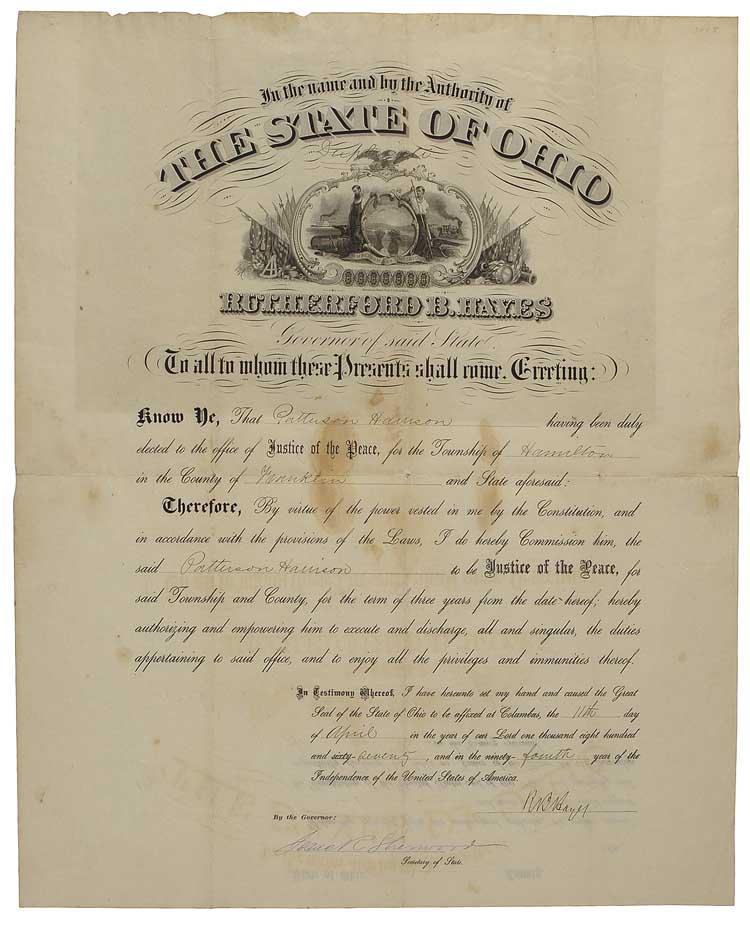 In the name and by the Authority of
THE STATE OF OHIO
Duplicate
RUTHERFORD B. HAYES
Governor of said State.
To all to whom these Presents shall come, Greeting:
Know Ye, That Patterson Harrison having been duly
elected to the office of Justice of the Peace, for the Township of Hamilton
in the County of Franklin and State aforesaid:
Therefore, By virtue of the power vested in me by the Constitution, and
in accordance with the provisions of the Laws, I do hereby Commission him, the
said Patterson Harrison to be Justice of the Peace, for
said Township and County, for the term of three years from the date hereof; hereby
authorizing and empowering him to execute and discharge, all and singular, the duties
appertaining to said office, and to enjoy all the privileges and immunities thereof.
In Testimony Whereof, I have hereunto set my hand and caused the Great
Seal of the State of Ohio to be affixed at Columbus, the 11th day
of April in the year of our Lord one thousand eight hundred
and sixty-seventy, and in the ninety-fourth year of the
Independence of the United States of America.
R B Hayes
By the Governor:
Isaac R Sherwood
Secretary of State.